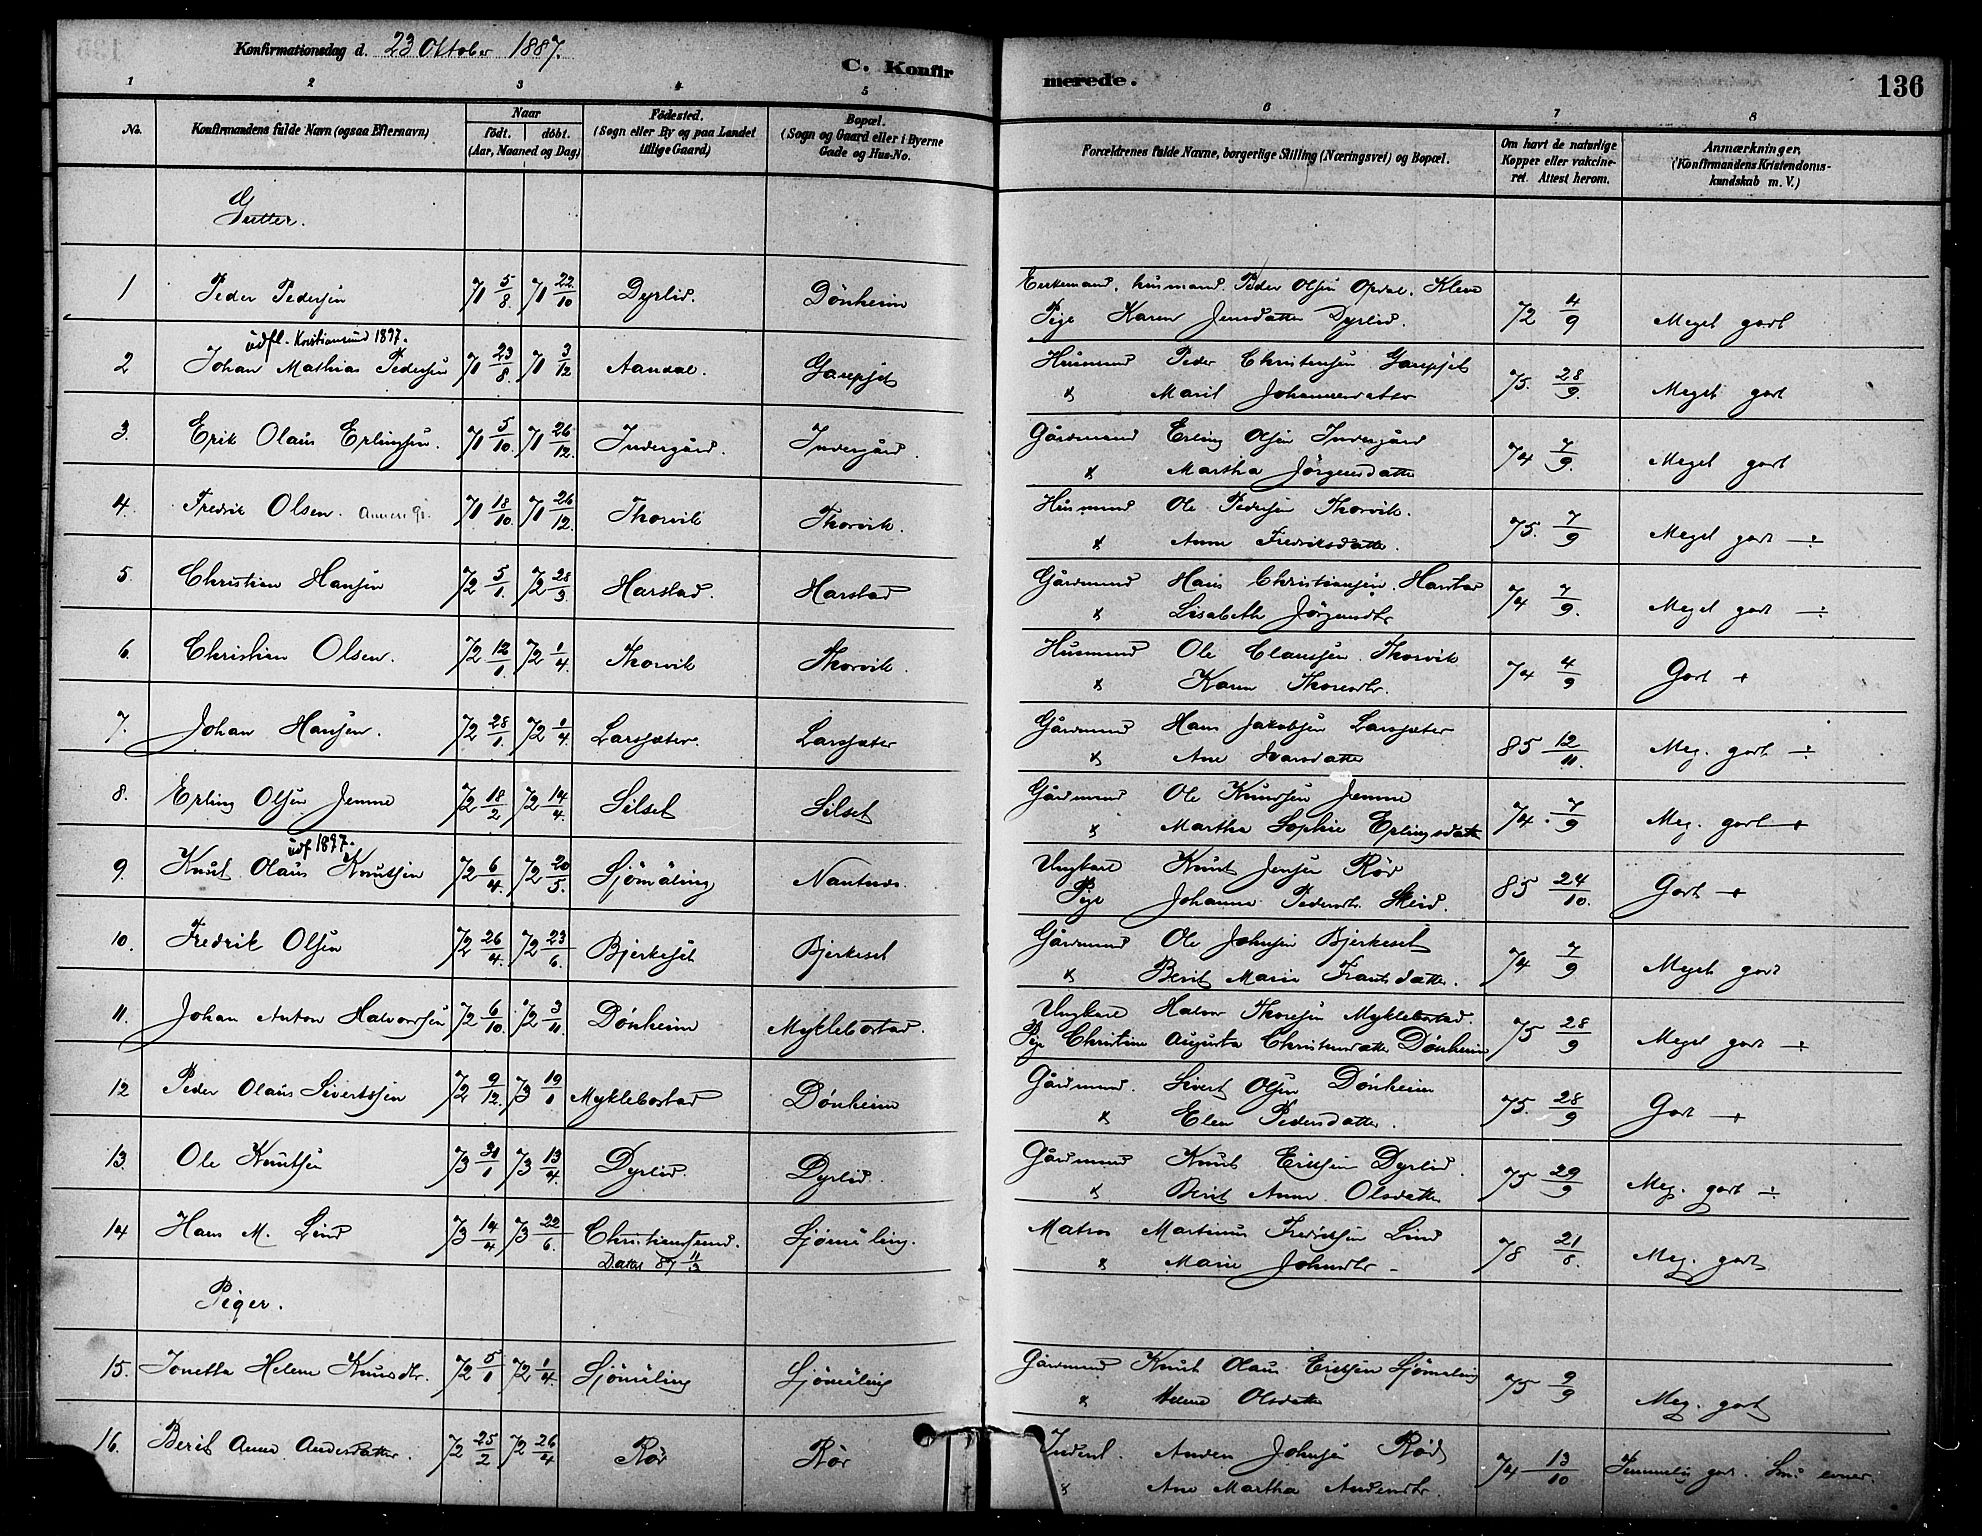 Konfirmationsdag d. 23 Oktober 1887.
C. Konfirmerede.
136
1 2 3 4 5 6 7 8
No.
Konfirmandens fulde Navn (ogsaa Efternavn)
Naar
födt. döbt.
(Aar, Maaned og Dag)
Födested.
(Sogn eller By og paa Landet
tillige Gaard)
Bopæl.
(Sogn og Gaard eller i Byerne
Gade og Hus-No.
Forældrenes fulde Navne, borgerlige Stilling (Næringsvei) og Bopæl.
Om havt de naturlige
Kopper eller vakcine-
ret. Attest herom.
Anmærkninger.
(Konfirmandens Kristendoms-
kundskab m. V.)
Gutter.
1 Peder Pedersen 71 5/8 71 22/10 Dyrlid. Dönheim Enkemand, husmand Peder Olsen Opdal. Kleve 72 4/9 Meget godt
Pige Karen Jensdatter Dyrlid.
udfl. Kristiansund 1897.
2 Johan Mathias Pedersen 71 23/8. 71 3/12 Aandal. Husmand Peder Christensen 75. 28/9. Meget godt
Marit Johannesdatter
3. Erik Olaus Erlingsen. 71 5/10. 71 26/12. Indergård. Indergård. Gårdmand Erling Olsen Indergård 74 7/9. Meget godt
Martha Jörgensdatter
4. Fredrik Olsen. 71 18/10. 71 26/12. Thorvik Thorvik. Husmand Ole Pedersen Thorvik. 75. 7/9 Meget godt ÷
Anne Fredriksdatter.
5. Christian Hansen 72 5/1. 72 28/3. Harstad. Harstad Gårdmand Hans Christiansen Harstad 74 7/9. Meget godt ÷
Lisabeth Jörgensdtr
6. Christian Olsen. 72 12/1. 72 1/4 Thorvik Thorvik. Husmand Ole Claussen Thorvik 74 4/9 Godt +
Karen Thoresdtr.
7. Johan Hansen. 72 28/1. 72 1/4. Larssæter. Larssæter Gårdmand Hans Jakobsen Larssæter 85 12/11. Meg. godt ÷
Ane Ivarsdatter
8. Erling Olsen Jemne 72 18/2 72 14/4. Silset Silset Gårdmand Ole Knudsen Jemne 74. 7/9 Meg. godt +
Martha Sophie Erlingsdatter
udf 1897.
9. Knut Olaus Knutsen 72 6/4. 72 20/5. Sjömæling Ungkarl Knut Jensen Röd 85 24/10. Godt +
Pige Johanna Pedersdtr. Skeid.
10. Fredrik Olsen 72 26/4. 72 23/6. Bjerkeset Bjerkeset Gårdmand Ole Johnsen Bjerkeset 74 7/9 Meget godt
Berit Marie Frantsdatter.
11. Johan Anton Halvorsen 72 6/10. 72 3/11. Dönheim Myklebostad. Ungkarl Halvor Thoresen Myklebostad. 75 28/9 Meget godt ÷
Pige Christine Augusta Christensdatter Dönheim
12 Peder Olaus Sivertsen 72 9/12. 73 19/1 Myklebostad Dönheim Gårdmand. Sivert Olsen Dönheim 75. 28/9 Godt +
Elen Pedersdatter.
13. Ole Knutsen 73 31/1 73 13/4. Dyrlid. Dyrlid. Gårdmand Knut Eriksen Dyrlid. 75 29/9 Meg. godt ÷
Berit Anne Olsdatter
14 Hans M. Lind 73 14/4 73 22/6. Christianssund. Sjömæling. Matros Martinus Fredriksen Lind 78 21/8. Meg. godt
87 11/3 Marie Johnsdtr
Piger.
15. Jonetta Helene Knudsdtr. 72 5/1 72 1/4. Sjömæling Sjömæling Gårdmand Knut Olaus Eriksen Sjömæling 75 9/9 Meg. godt
Helene Olsdatter
16. Berit Anna Andersdatter. 72 25/2 72 26/4 Rör Rör Inderst. Anders Johnsen Röd 74 13/10 Temmelig godt. Små evner.
Ane Martha Andersdtr.